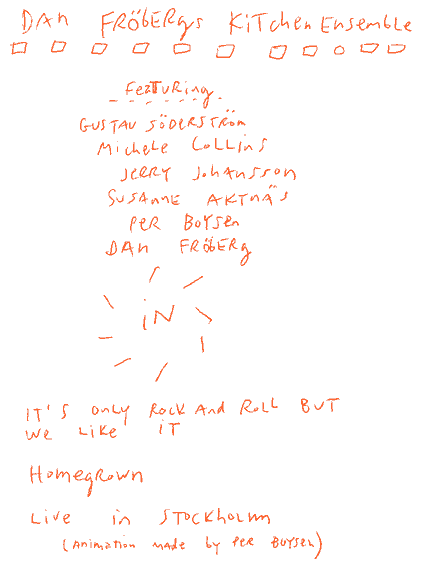 DAN FRÖBERgs KiTchen Ensemble
FeaTURing
GUSTAV SÖDERSTRÖM
Michele Collins
JERRY Johansson
SUSANNE AKTNÄS
PER BOYSEN
DAN FRÖBERg
iN
IT'S only Rock And Roll BUT
We Like IT
Homegrown
Live in STOCKHOLM
(Animation made by PER BOYSEN)